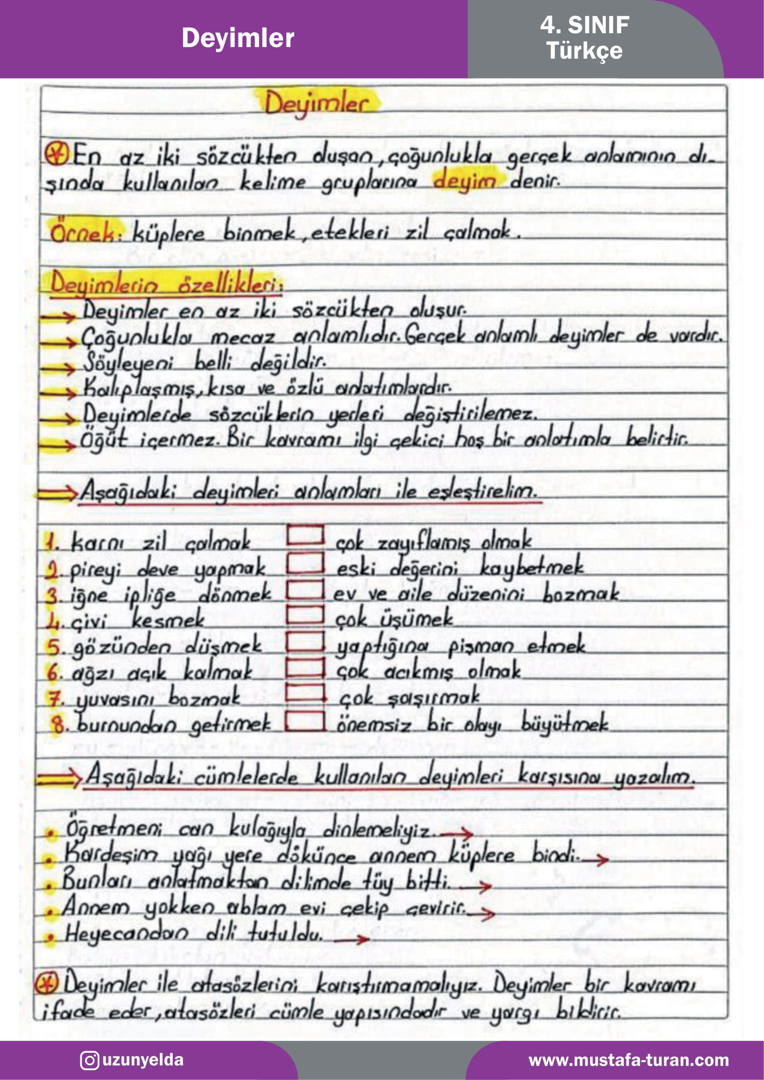 Deyimler
4. SINIF
Türkçe
Deyimler
En az iki sözcükten oluşan, çoğunlukla gerçek anlamının dı-
şında kullanılan kelime gruplarına deyim denir.
Örnek: küplere binmek, etekleri zil çalmak.
Deyimlerin özellikleri:
→ Deyimler en az iki sözcükten oluşur.
→ Çoğunlukla mecaz anlamlıdır. Gerçek anlamlı deyimler de vardır.
→ Söyleyeni belli değildir.
→ Kalıplaşmış, kısa ve özlü anlatımlardır.
→ Deyimlerde sözcüklerin yerleri değiştirilemez.
→ Öğüt içermez. Bir kavramı ilgi çekici hoş bir anlatımla belirtir.
⇒ Aşağıdaki deyimleri anlamları ile eşleştirelim.
1. karnı zil çalmak çok zayıflamış olmak
2. pireyi deve yapmak eski değerini kaybetmek
3. iğne ipliğe dönmek ev ve aile düzenini bozmak
4. çivi kesmek çok üşümek
5. gözünden düşmek yaptığına pişman etmek
6. ağzı açık kalmak çok acıkmış olmak
7. yuvasını bozmak çok şaşırmak
8. burnundan getirmek önemsiz bir olayı büyütmek
⇒ Aşağıdaki cümlelerde kullanılan deyimleri karşısına yazalım.
• Öğretmeni can kulağıyla dinlemeliyiz. →
• Kardeşim yağı yere dökünce annem küplere bindi. →
• Bunları anlatmaktan dilimde tüy bitti. →
• Annem yokken ablam evi çekip çevirir. →
• Heyecandan dili tutuldu. →
Deyimler ile atasözlerini karıştırmamalıyız. Deyimler bir kavramı
ifade eder, atasözleri cümle yapısındadır ve yargı bildirir.
uzunyelda
www.mustafa-turan.com